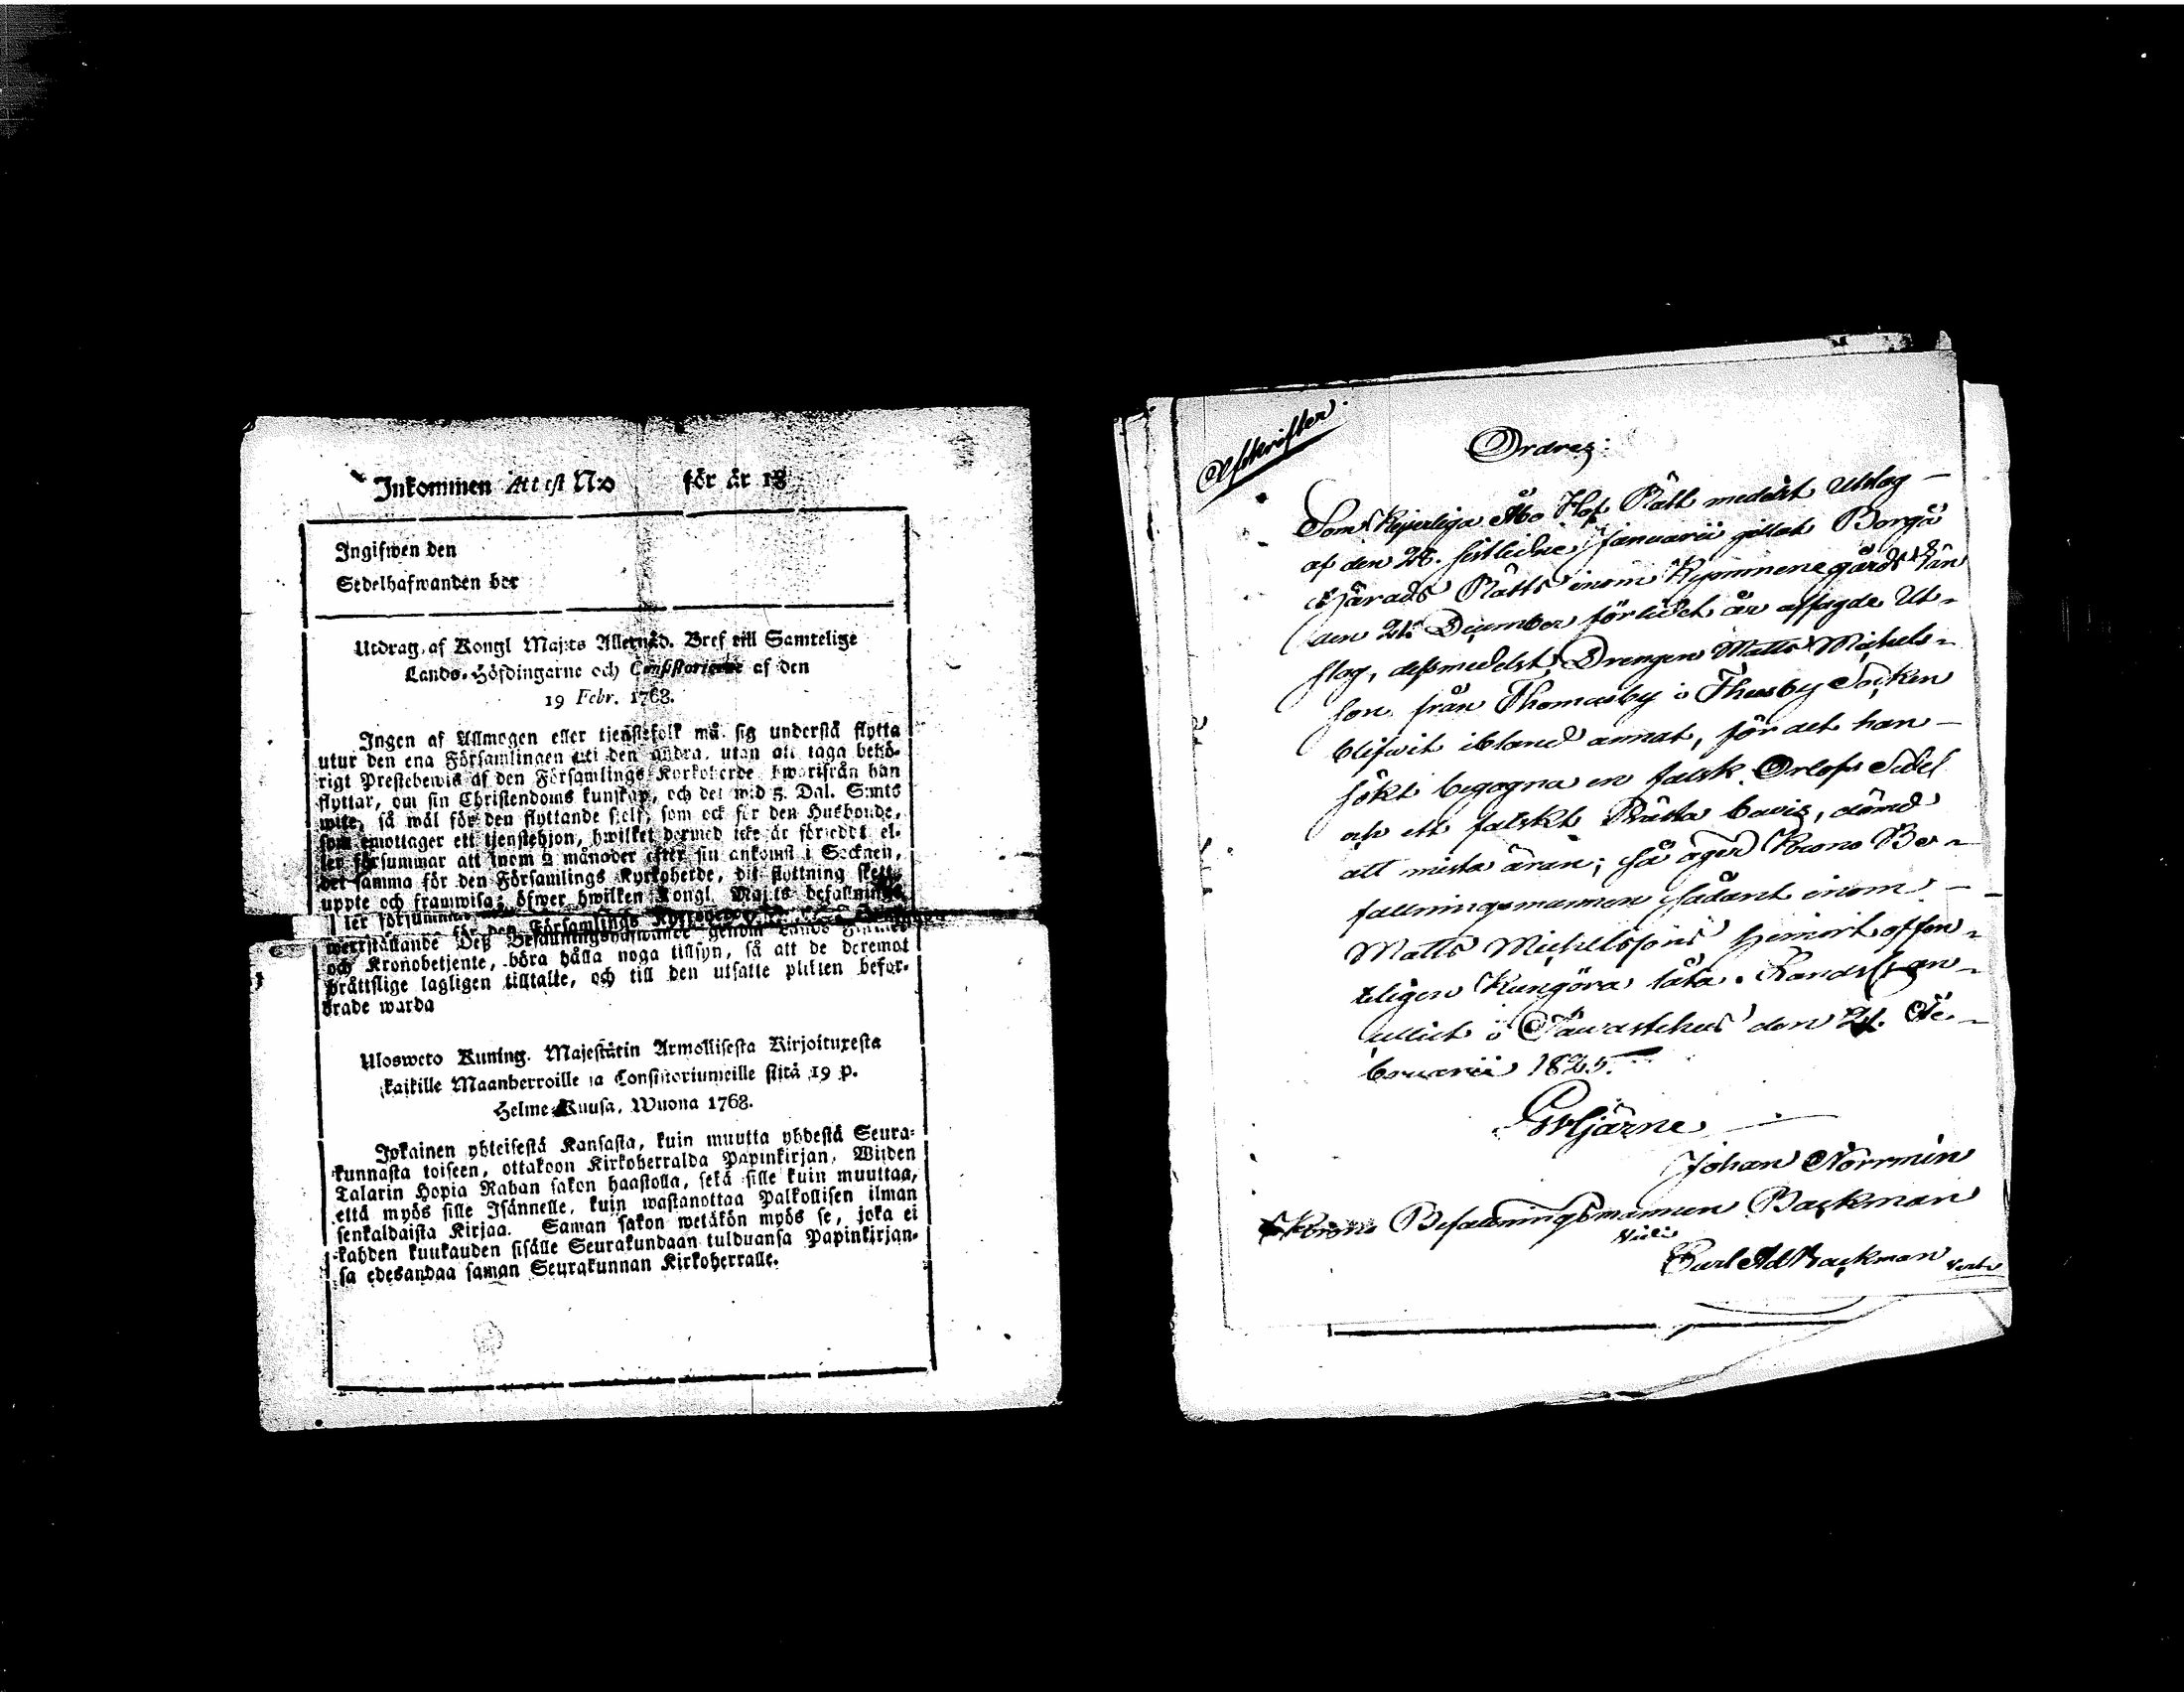 Inkommen Attest N:o för år 18
Ingifwen den
Sedelhafwanden bor
Utdrag af Kongl Maj:ts Allernåd. Bref till Samtelige
Lands-Höfdingarne och Consistorierne af den
19 Febr. 1768.
Ingen af Allmogen eller tjenstefolk må sig understå flytta
utur den ena Församlingen uti den andra, utan att taga behö-
rigt Prestebewis af den Församlings Kyrkoherde, hwarifrån han
flyttar, om sin Christendoms kunskap, och det wid 5. Dal. S:mts
wite, så wäl för den flyttande sielf, som ock för den Husbonde,
som emottager ett tjenstehjon, hwilket dermed icke är försedt el-
ler försummar att inom 2 månader efter sin ankomst i Socknen,
det samma för den Församlings Kyrkoherde, dit flyttning skett,
uppte och framwisa; öfwer hwilken Kongl. Maj:ts befallnings
ler försummar för den Församlings
werkställande Deß Befallningshafwande genom Lands
och Kronobetjente, böra hålla noga tillsyn, så att de deremot
bråttslige lagligen tilltalte, och till den utsatte plikten befor-
drade warda
Ulosweto Kuning. Majestätin Armollisesta Kirjoituxesta
kaikille Maanherroille ja Consistoriumeille siitä 19 p.
Helme-Kuusa, Wuona 1768.
Jokainen yhteisestä Kansasta, kuin muutta yhdestä Seura-
kunnasta toiseen, ottakoon Kirkoherralda Papinkirjan, Wiiden
Talarin Hopia Rahan sakon haastolla, sekä sille kuin muuttaa,
että myös sille Isännelle, kuin wastanottaa Palkollisen ilman
senkaldaista Kirjaa. Saman sakon wetäkön myös se, joka ei
kahden kuukauden sisälle Seurakundaan tulduansa Papinkirjan-
sa edesandaa saman Seurakunnan Kirkoherralle.
Afskrifter.
Ordres:
Som Kejserliga Åbo Hof Rätt medelst Utslag
af den 24. sistledne Januarii gillat Borgå
Härads Rätts inom Kymmenegårds Län
den 21. December förledet år affagde Ut-
slag, desmedelst Drengen Matts Michels-
son från Thomasby i Thusby Socken
blifwit ibland annat, för det han
sökt begagna en falsk Orlofs Sedel
och ett falskt Prästa bevis, dömd
att mista äran; så äger Krono Be-
fallningsmannen sådant inom
Matts Michelssons hemort offen-
teligen Kungöra låta. Lands Can-
celliet i Tawastehus den 21. Fe-
bruarii 1825.
Johan Norrmén
Krono Befallningsmannen Backman
Carl Ad Backman